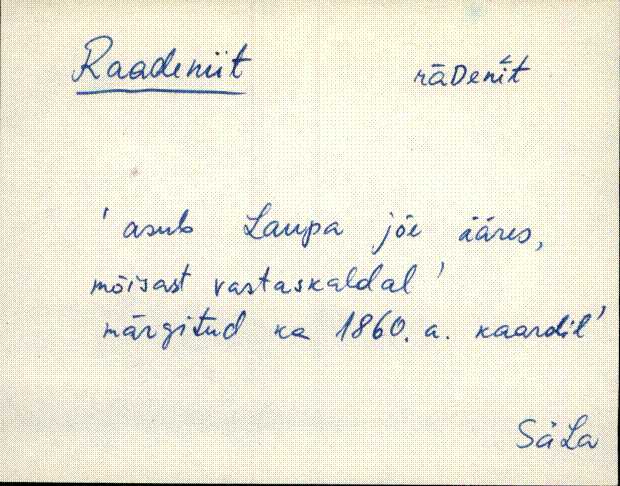 Raadeniit rāDenīt
' asub Laupa jõe ääres,
mõisast vastaskaldal '
märgitud ka 1860. a. kaardil'
SäLa